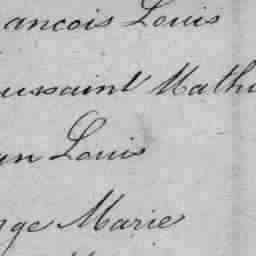 ancois Louis
ussaint Math
an Louis
ge Marie